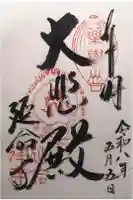 奉拝
令和八年
五月五日
大悲殿
延命寺